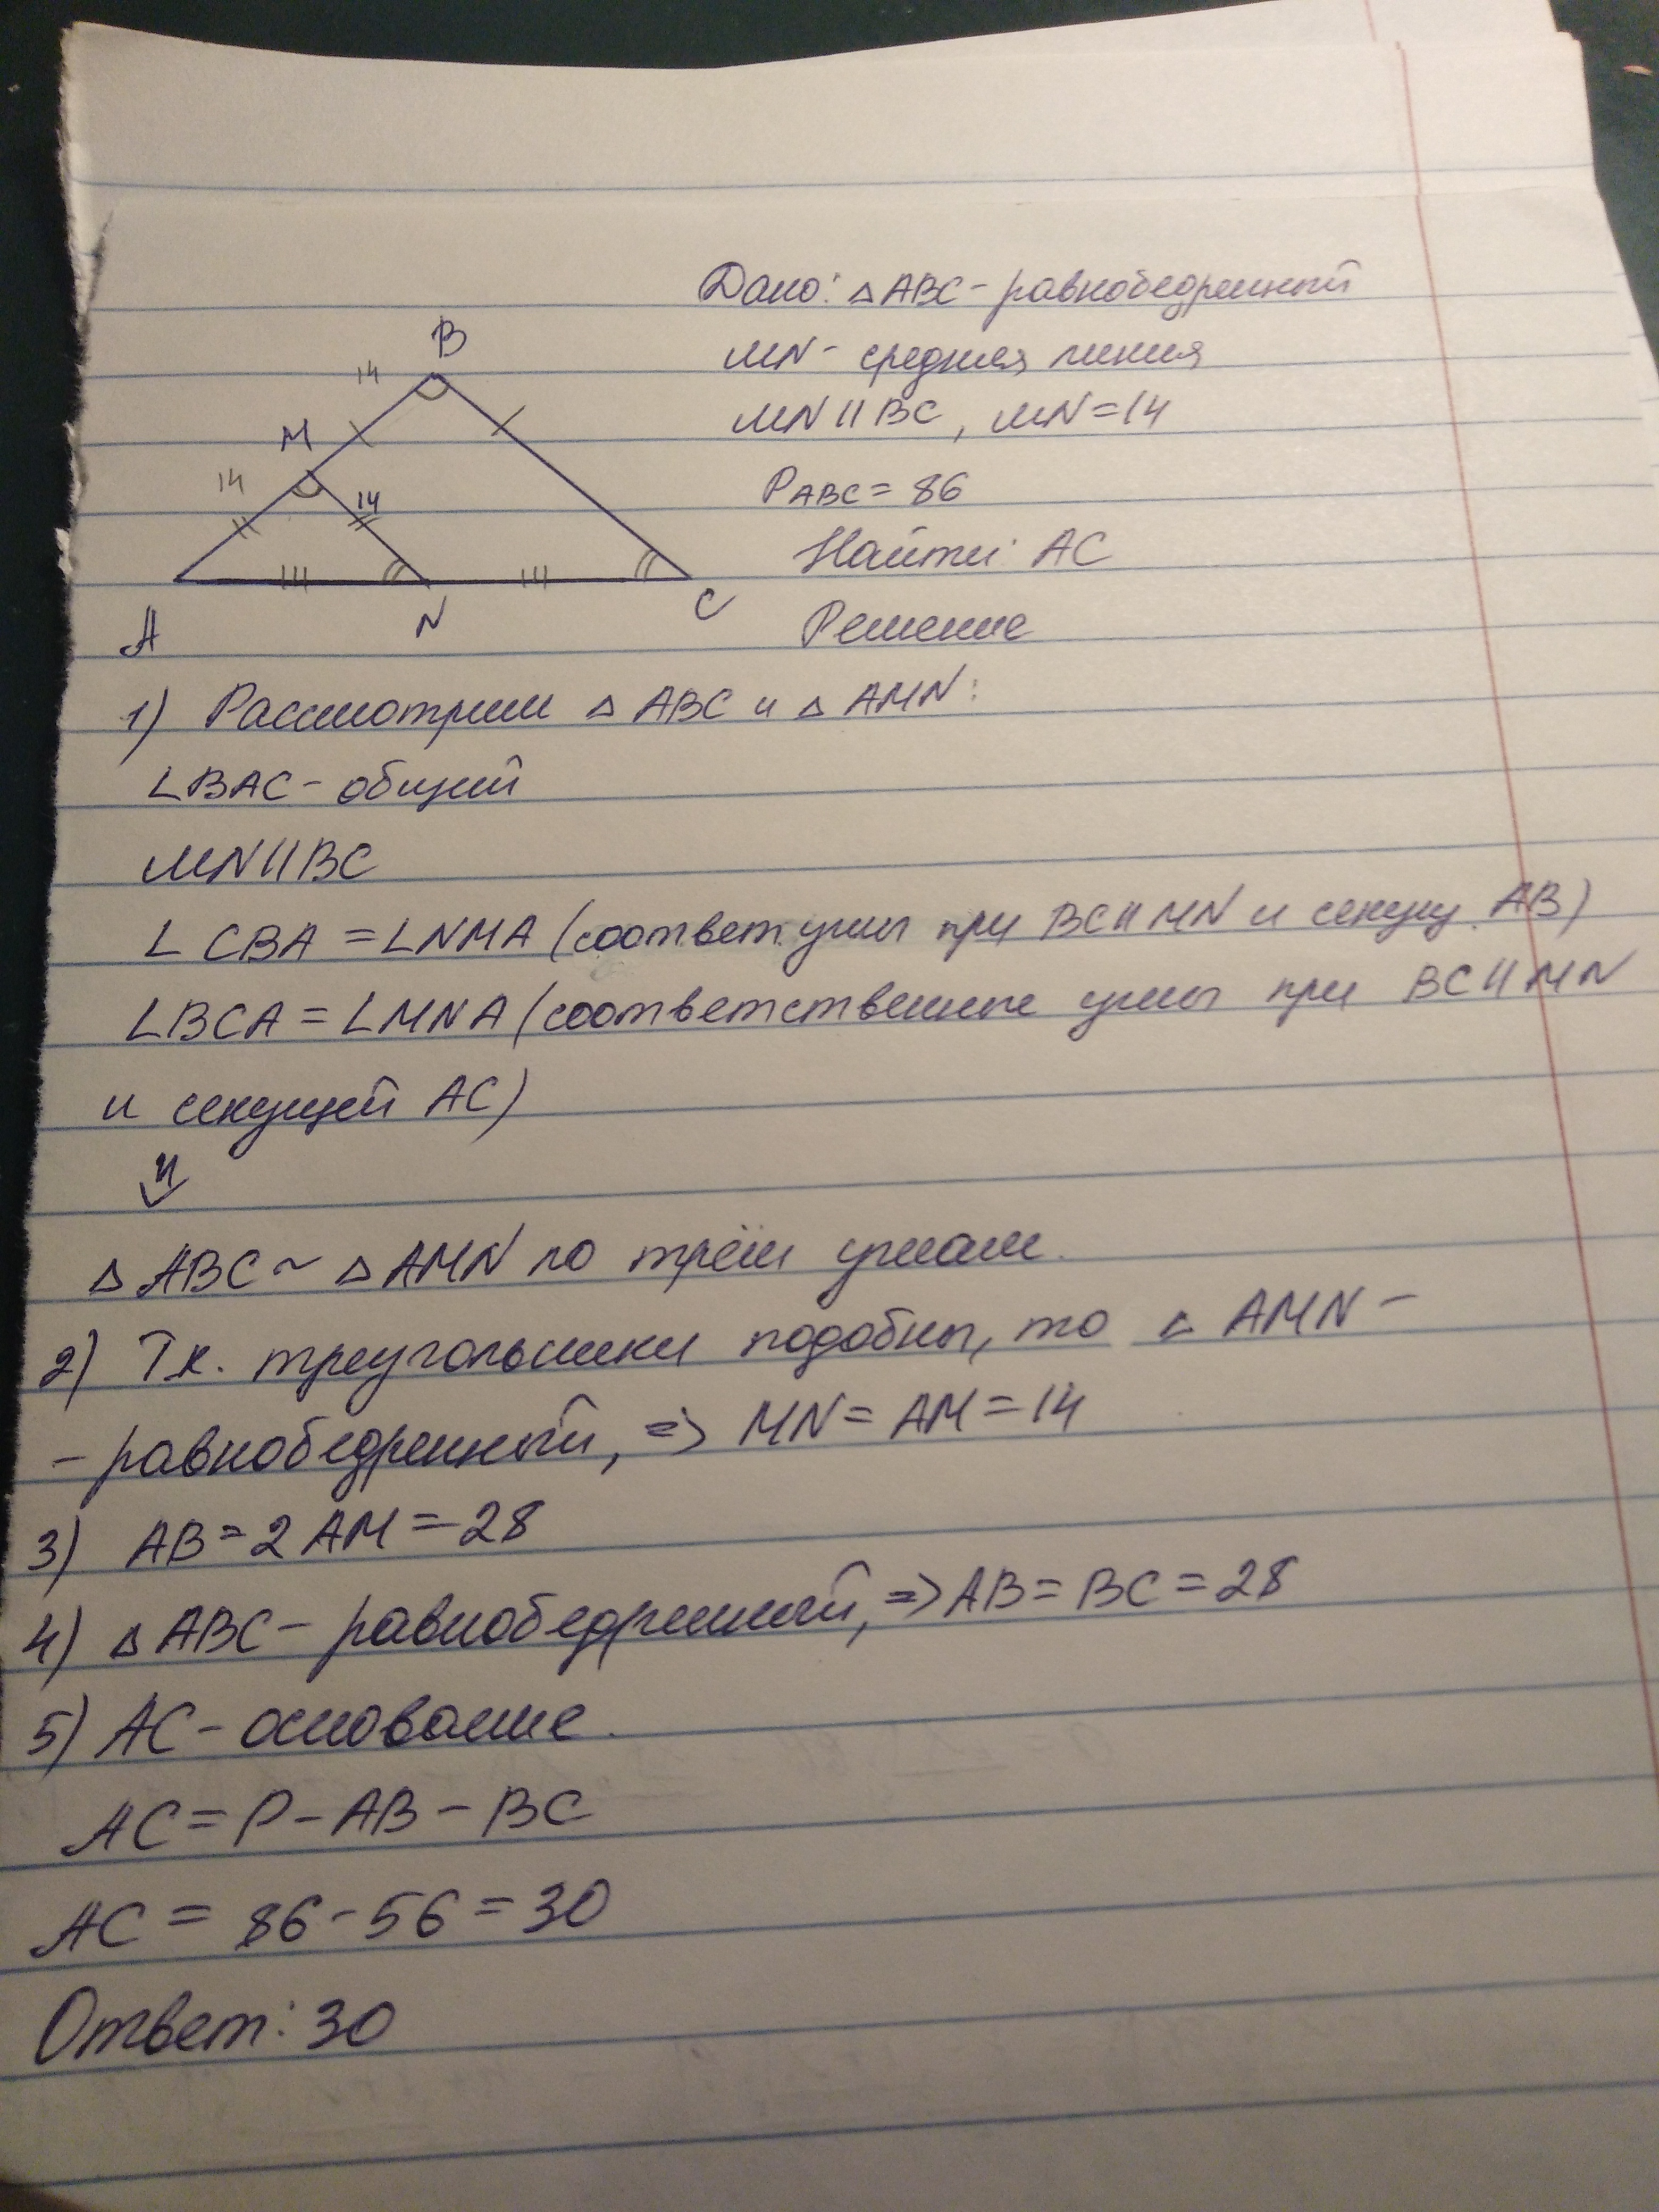 Дано: △ABC - равнобедренный
MN - средняя линия
MN || BC, MN = 14
PABC = 86
Найти: AC
Решение
B
14
M
14
14
A
N
C
1) Рассмотрим △ ABC и △ AMN:
∠BAC - общий
MN || BC
∠CBA = ∠NMA (соответ. углы при BC || MN и секущ. AB)
∠BCA = ∠MNA (соответственные углы при BC || MN
и секущей AC)
⇓
△ ABC ~ △ AMN по трём углам.
2) Т.к. треугольники подобны, то △ AMN -
- равнобедренный, => MN = AM = 14
3) AB = 2 AM = 28
4) △ ABC - равнобедренный, => AB = BC = 28
5) AC - основание.
AC = P - AB - BC
AC = 86 - 56 = 30
Ответ: 30